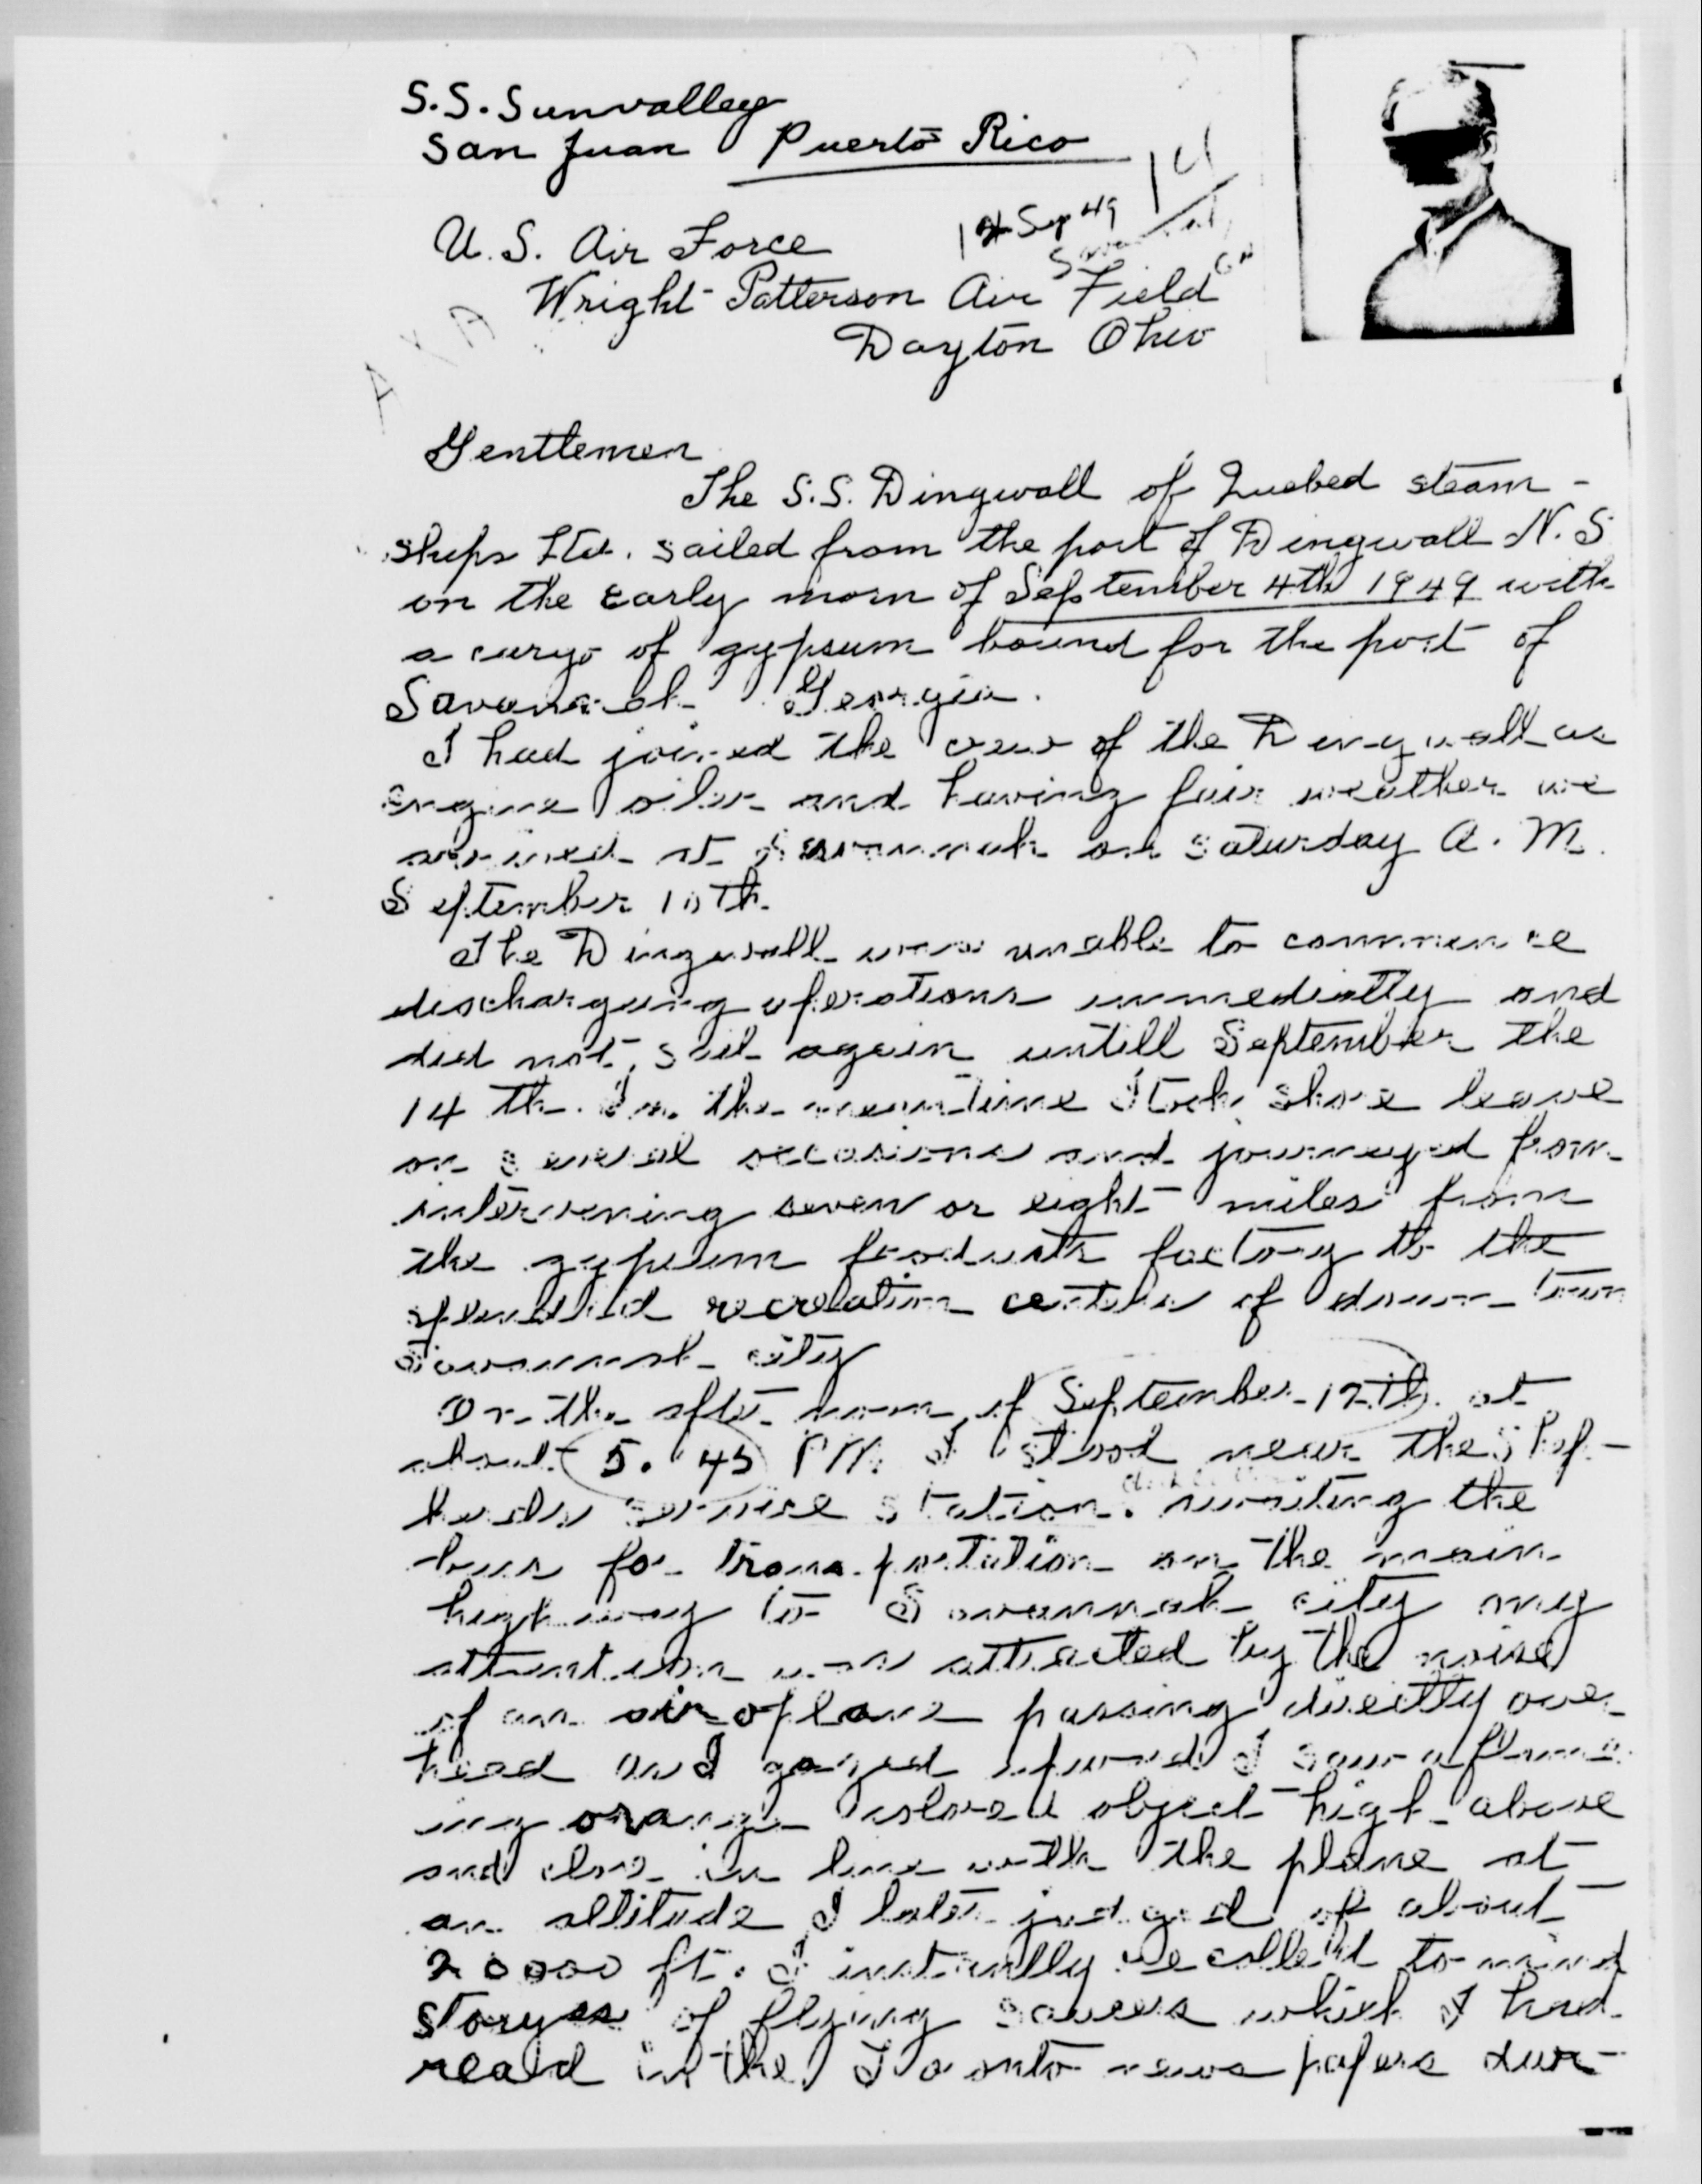 S.S. Sunvalley
San Juan Puerto Rico
14
12 Sep 49
U.S. Air Force
Wright-Patterson Air Field
Dayton Ohio
Gentlemen
The S.S. Dingwall of Quebed steam-
ships Ltd. sailed from the port of Dingwall N.S
on the early morn of September 4th 1949 with
a cargo of gypsum bound for the port of
Savanah Georgia.
I had joined the crew of the Dingwall as
engine oiler and having fair weather we
arrived at Savannah on Saturday A.M.
September 10th.
The Dingwall was unable to commence
discharging operations immediatly and
did not sail again untill September the
14 th. In the meantime I took shore leave
on several occasions and journeyed from
intervening seven or eight miles from
the gypsum products factory to the
splendid recreation centers of down-town
Savannah city
On the after-noon of September 12th at
about 5.45 PM. I stood near the
service station. awaiting the
bus for transportation on the main
highway to Savannah city my
attention was attracted by the noise
of an airoplane passing directly over
head and gazed upward I saw a flame-
ing orange colored object high above
and close in line with the plane at
an altitude I later judged of about
20000 ft. I instantly recalled to mind
storyes of flying saucers which I had
read in the Toronto news papers dur-